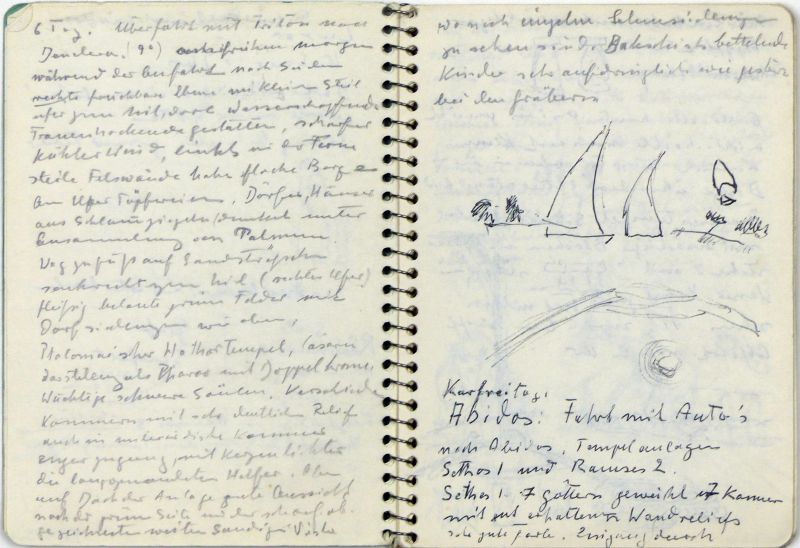 6 Tag. Überfahrt mit Triton nach
Dendera. (9°) morgen
während der Anfahrt nach Süden
rechts fruchtbare Ebene mit kleinem Steil
ufer zum Nil, dort wasserschöpfende
Frauen hockende gestalten, scharfer
kühler Wind, links in der Ferne
steile Felswände hohe flache Berge
Am Ufer Töpfereien, Dörfer, Häuser
aus Schlammziegeln, unter
Ansammlung von Palmen.
Weg zu fuß auf Sandsträßchen
senkrecht zum Nil (rechtes Ufer)
fleißig bebaute grüne Felder mit
Dorfsiedlungen wie oben,
Ptolomäischer Hathor Tempel, Cäsaren
darstellung als Pharao mit Doppelkrone.
Mächtige schwere Säulen. Verschiedene
Kammern mit sehr deutlichen Relief
auch in unterirdische Kammer
enger zugang, mit Kerzenlichter
die Helfer. Oben
auf Dach der Anlage gute Aussicht
nach der grünen Seite und der scharf ab
gezeichneten weiten Sandigen Wüste
wo noch einzelne Lehmsiedlungen
zu sehen sind. Bakschisch bettelnde
Kinder sehr aufdringlich wie gestern
bei den Gräbern
Karfreitag,
Abidos: Fahrt mit Auto's
nach Abidos, Tempelanlagen
Sethos 1 und Ramses 2.
Sethos 1. 7 göttern geweiht 7 Kammern
mit gut erhaltenen Wandreliefs
sehr gute Farbe. Eingang durch